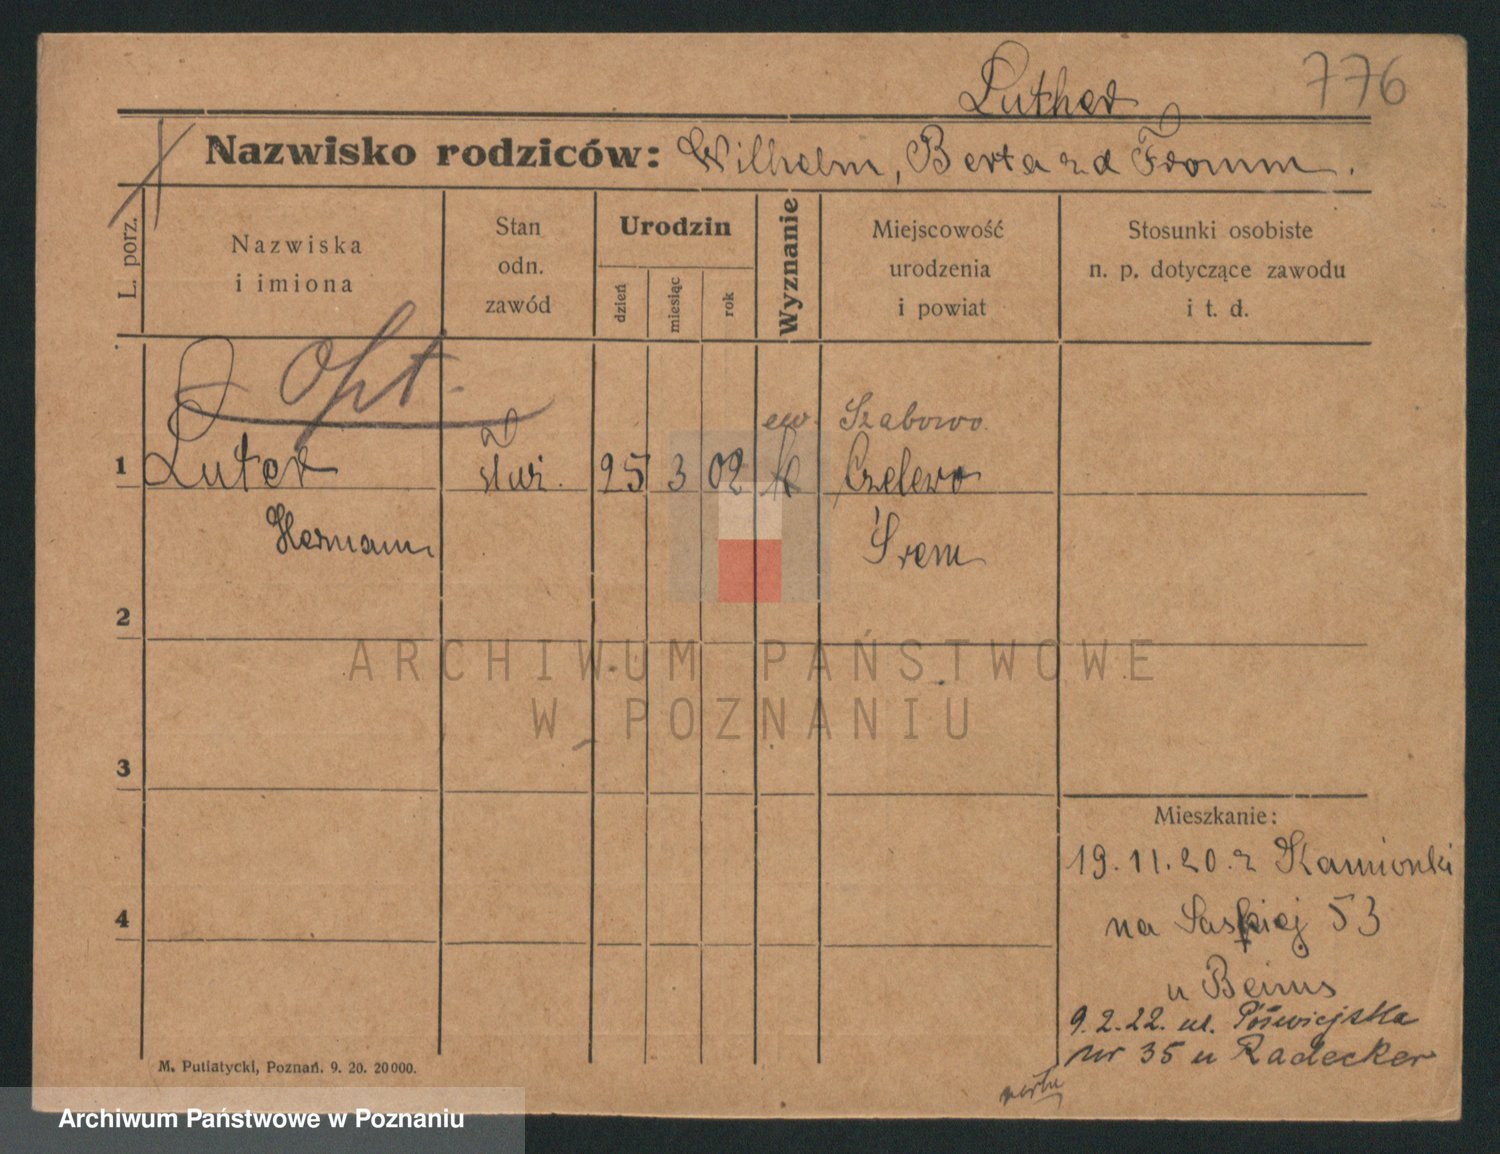 776
Luther
Nazwisko rodziców: Wilhelm, Berta z d Fromm.
L. porz.
Nazwiska
i imiona
Stan
odn.
zawód
Urodzin
dzień
miesiąc
rok
Wyznanie
Miejscowość
urodzenia
i powiat
Stosunki osobiste
n. p. dotyczące zawodu
i t. d.
Opt.
ew. Szabowo.
1 Luter 25 3 02 Czelewo
Hermann Śrem
2
ARCHIWUM PAŃSTWOWE
W POZNANIU
3
Mieszkanie:
19.11.20. z Kamionki
4
na Saskiej 53
u Beims
9.2.22. ul. Półwiejska
nr 35 u Radecker
M. Putiatycki, Poznań. 9. 20. 20000.
Archiwum Państwowe w Poznaniu